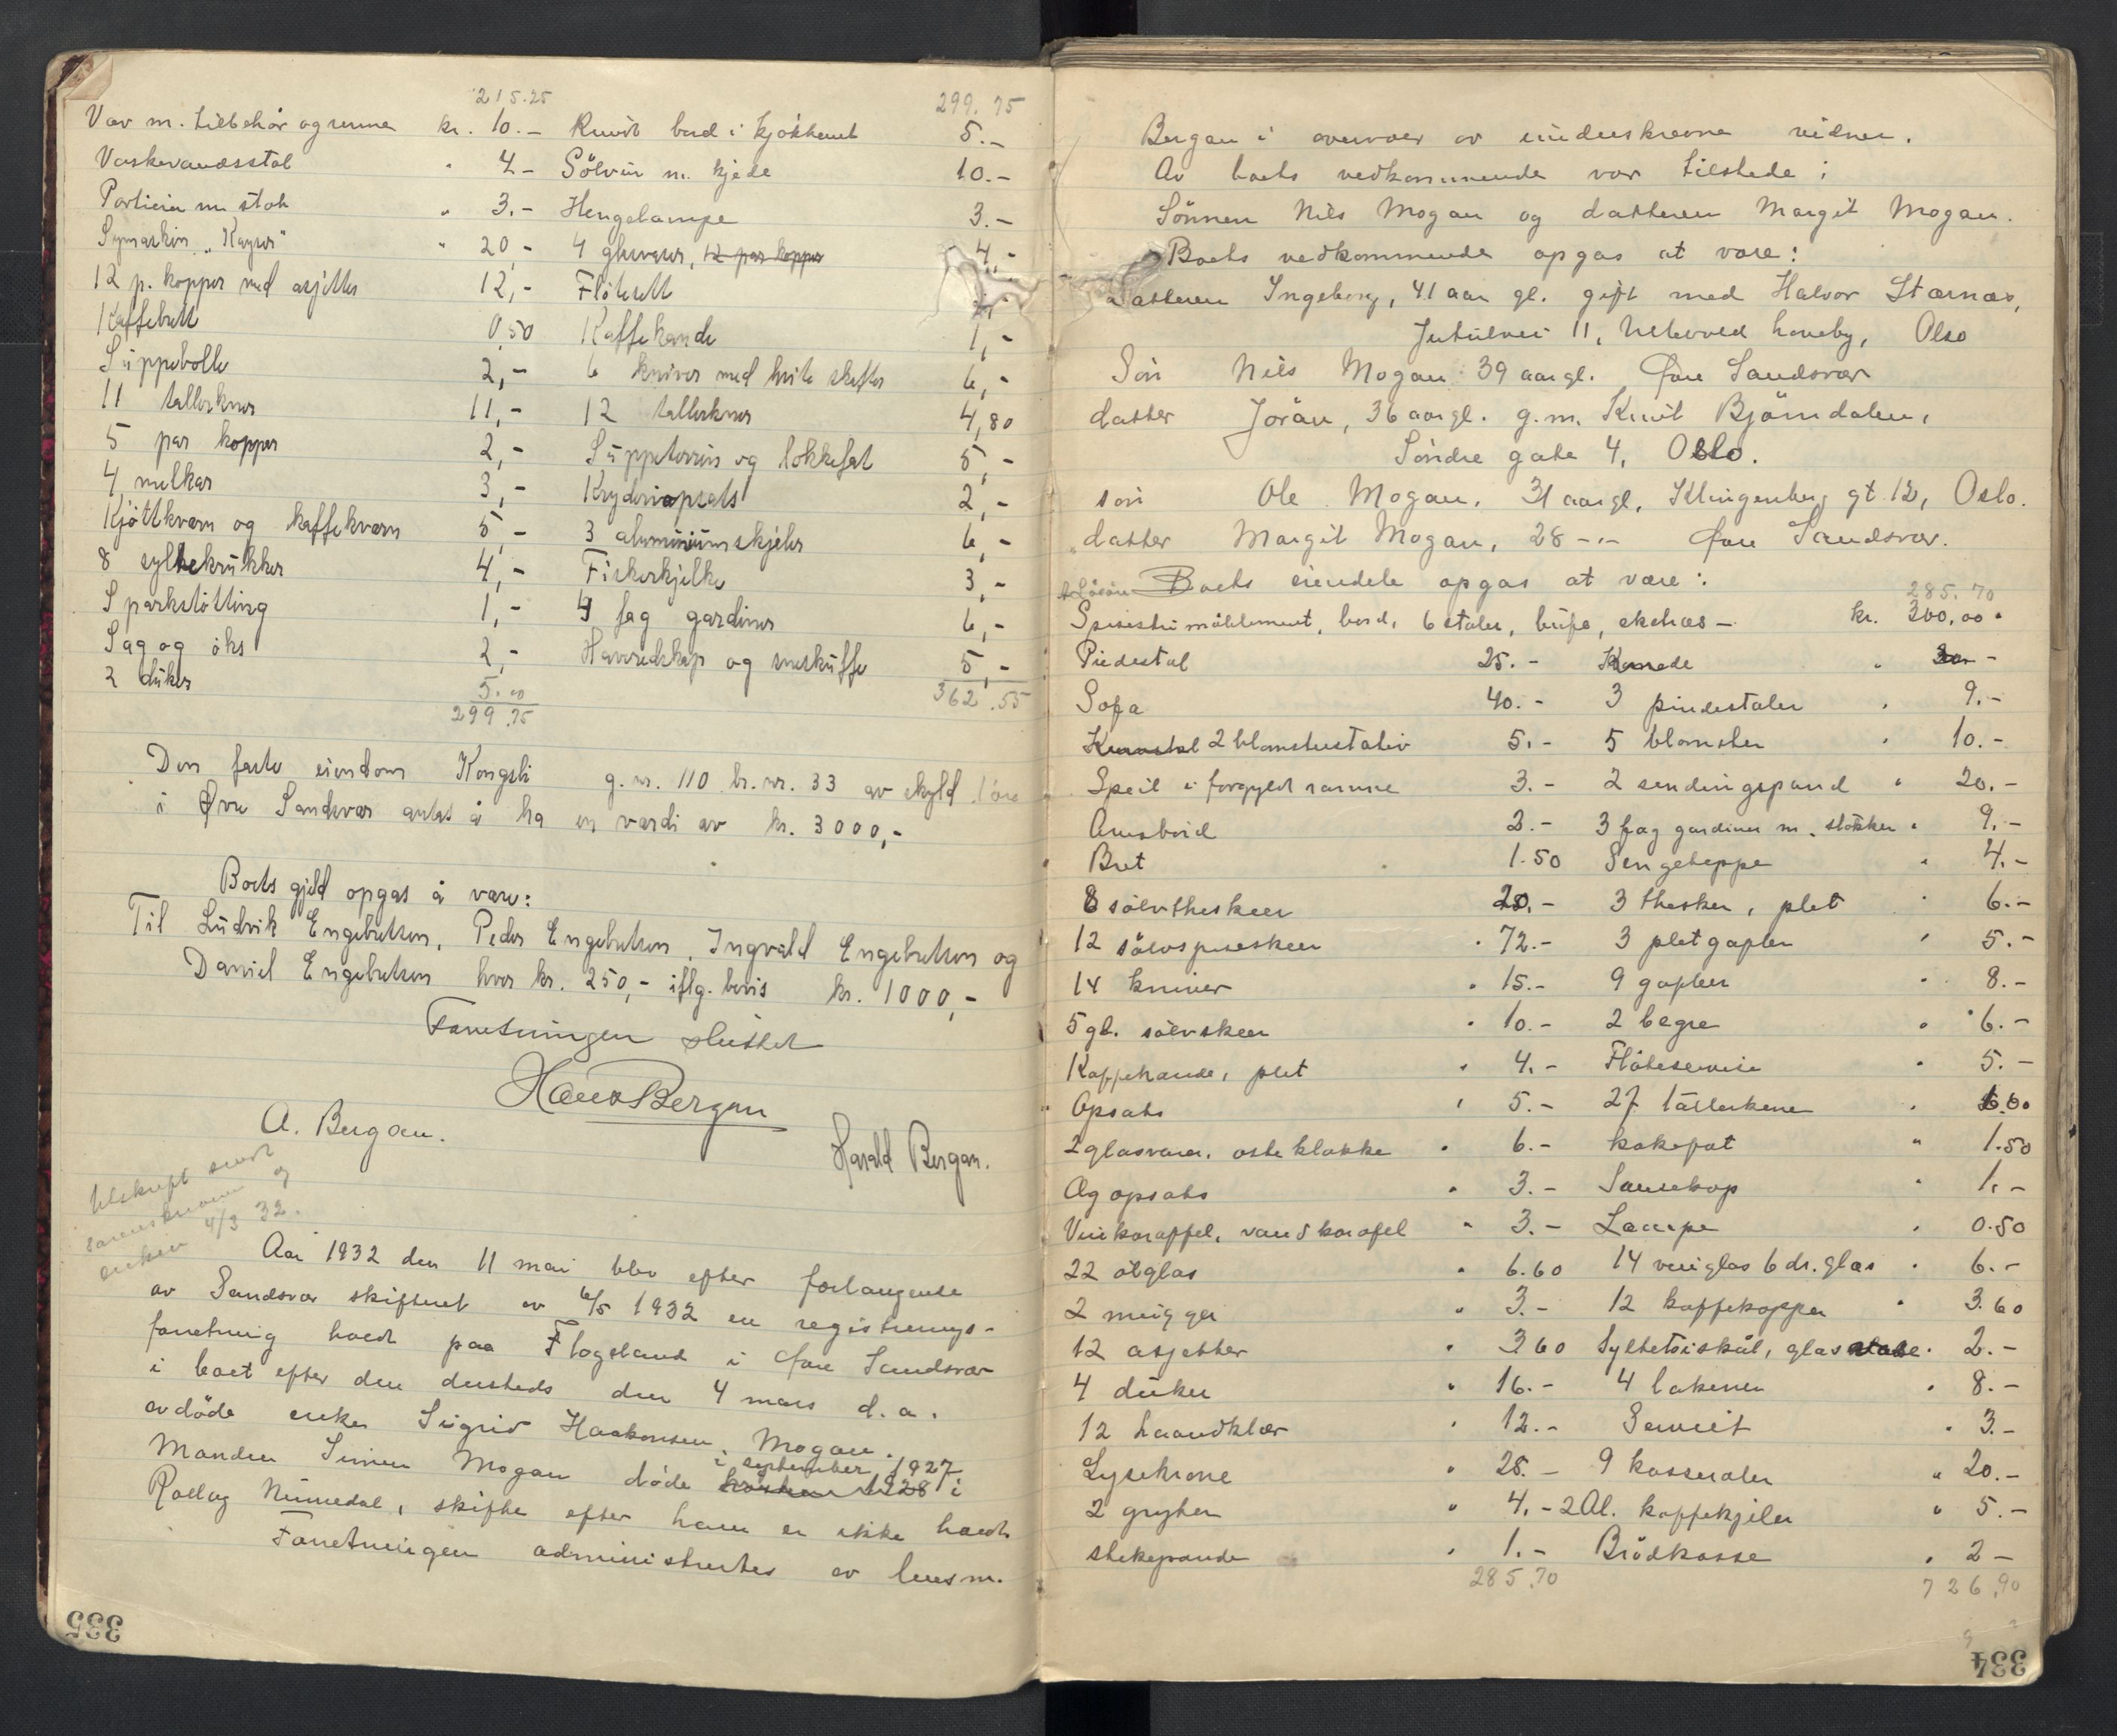 215.25 299.75
Væv m. tilbehør og renne kr. 10.- Rundt bord i kjøkkenet 5.-
Vaskevandsstol " 4.- Sölvur m. kjede 10.-
Portierer m stok " 3.- Hengelampe 3.-
Symaskin "Kayser" " 20,- 4 glassvaser, 12 par kopper 4,-
12 p. kopper med asjetter 12,- Flötesett
Kaffebrett 0,50 Kaffekande 1,-
Suppebolle 2,- 6 kniver med hvite skefter 6,-
11 tallerkner 11,- 12 tallerkner 4,80
5 par kopper 2,- Suppeterrin og lokkefat 5,-
4 melkar 3,- Kryderiopsats 2,-
Kjöttkvern og kaffekvern 5,- 3 aluminiumskjeler 6,-
8 syltekrukker 4,- Fiskerkjelke 3,-
Sparkstötting 1,- 4 fag gardiner 6,-
Sag og öks 2,- Haveredskap og sneskuffe 5,-
2 duker 5.00 362.55
299.75
Den faste eiendom Kongsli g.nr. 110 br.nr. 33 av skyld 1 øre
i Øvre Sandsvær antas å ha en verdi av kr. 3000,-
Boets gjeld opgas å være:
Til Ludvik Engebretsen, Peder Engebretsen, Ingvald Engebretsen og
Daniel Engebretsen hver kr. 250,- iflg. bevis kr. 1000,-
Forretningen sluttet
Hans Bergan
A. Bergan.
Harald Bergan.
Utskrift sendt
sorenskriveren og
enken 4/3 32.
Aar 1932 den 11 mai blev efter forlangende
av Sandsvær skifteret av 6/5 1932 en registrerings-
forretning holdt paa Flogeland i Øvre Sandsvær
i boet efter den dersteds den 4 mars d.a.
avdöde enke Sigrid Haakonsen Mogan.
i september 1927
Manden Simen Mogan döde hösten 1928 i
Rollag Numedal, skifte efter ham er ikke holdt
Forretningen administrertes av lensm.
335
Bergan i overvær av underskrevne vidner.
Av boets vedkommende var tilstede:
Sönnen Nils Mogan og datteren Margit Mogan.
Boets vedkommende opgas at være:
datteren Ingeborg, 41 aar gl. gift med Halvor Stærnæs,
Jutulvei 11, Ullevold haveby, Olso
Sön Nils Mogan 39 aar gl. Øvre Sandsvær
datter Jorån, 36 aar gl. g.m. Knut Björndalen,
Söndre gate 4, Oslo.
sön Ole Mogan. 31 aar gl, Klingenberg gt. 12, Oslo.
datter Margit Mogan, 28 -"- Øvre Sandsvær.
A Lösöre Boets eiendele opgas at være: 285.70
Spisestuemöblement, bord, 6 stoler, bufe, eketræs - kr. 300,00.
Piedestal 25.- Komode " 30.-
Sofa 40.- 3 pindestoler " 9.-
Kurvstol 2 blomsterstativ 5.- 5 blomster " 10.-
Speil i forgyldt ramme 3.- 2 sendingspand " 20.-
Avisbord 2.- 3 fag gardiner m. stokker " 9.-
Bret 1.50 Sengeteppe " 4.-
8 sölvtheskeer 20.- 3 thesker, plet " 6.-
12 sölvspiseskeer " 72.- 3 pletgafler " 5.-
14 kniver " 15.- 9 gafler " 8.-
5 gl. sölvskeer " 10.- 2 begre " 6.-
Kaffekande, plet " 4.- Flöteservise " 5.-
Opsats " 5.- 27 tallerkener " 6.60
2 glasvaser, osteklokke " 6.- kakefat " 1.50
Æg opsats " 3.- Sausekop " 1.-
Vinkaraffel, vandkarafel " 3.- Lampe " 0.50
22 ölglas " 6.60 14 vinglas 6 dr. glas " 6.-
2 mugger " 3.- 12 kaffekopper " 3.60
12 asjetter " 3 60 Syltetöiskål, glasvase " 2.-
4 duker " 16.- 4 lakener " 8.-
12 haandklær " 12.- Serviet " 3.-
Lysekrone " 25.- 9 kasseroler " 20.-
2 gryter " 4.- 2 Al. kaffekjeler " 5.-
stekepande " 1.- Brödkasse " 2 -
285.70 726.90
334